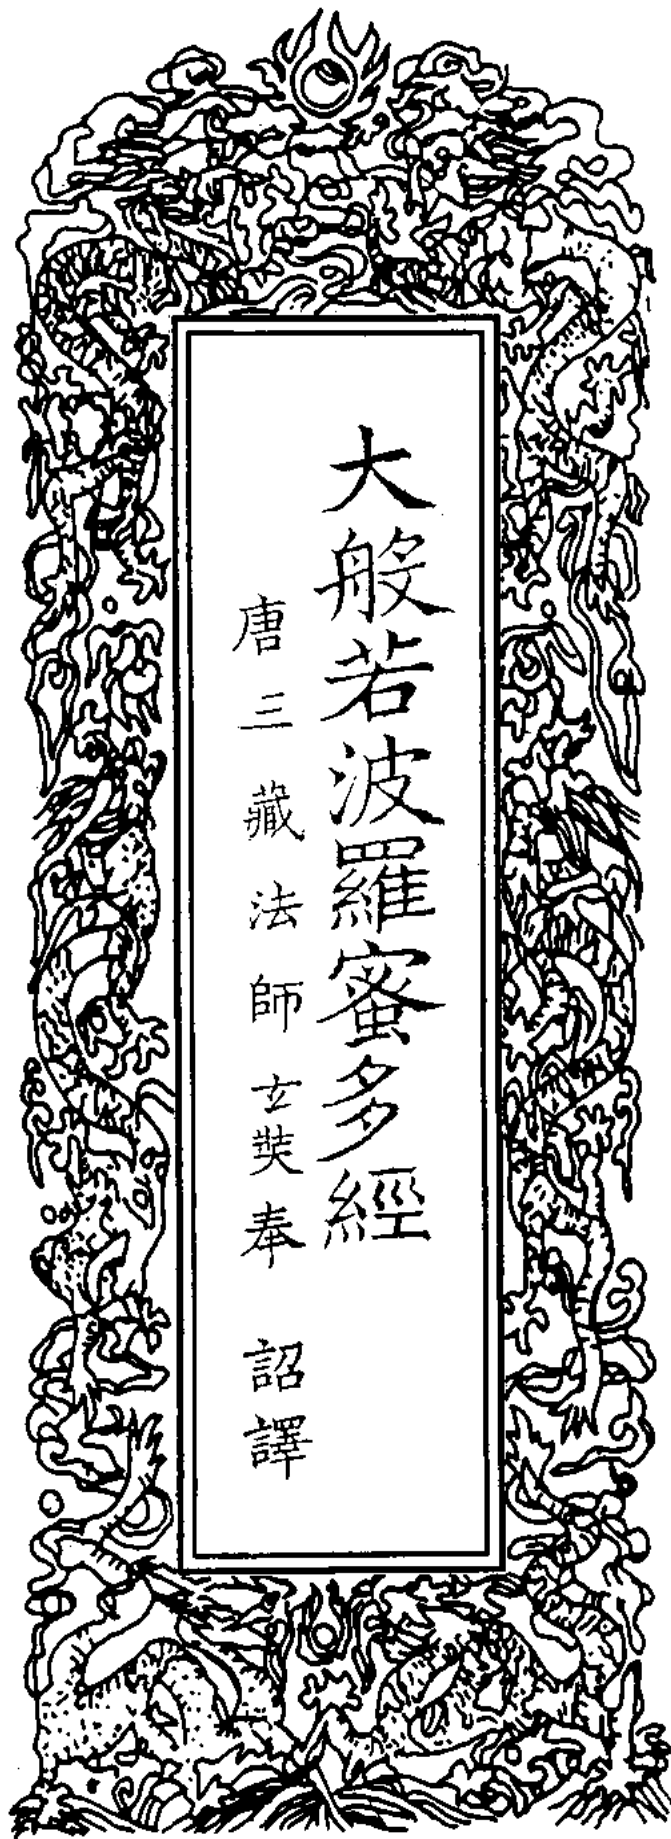 大般若波羅蜜多經
唐三藏法師玄奘奉 詔譯